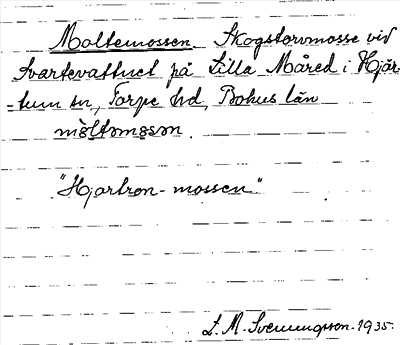 Moltemossen. Skogstorvmosse vid
Svartevattnet på Lilla Måred i Hjär-
-tum sn, Torpe hd, Bohus län
mòltəmɐsən.
"Hjortron-mossen"
L. M. Svenungsson. 1935.